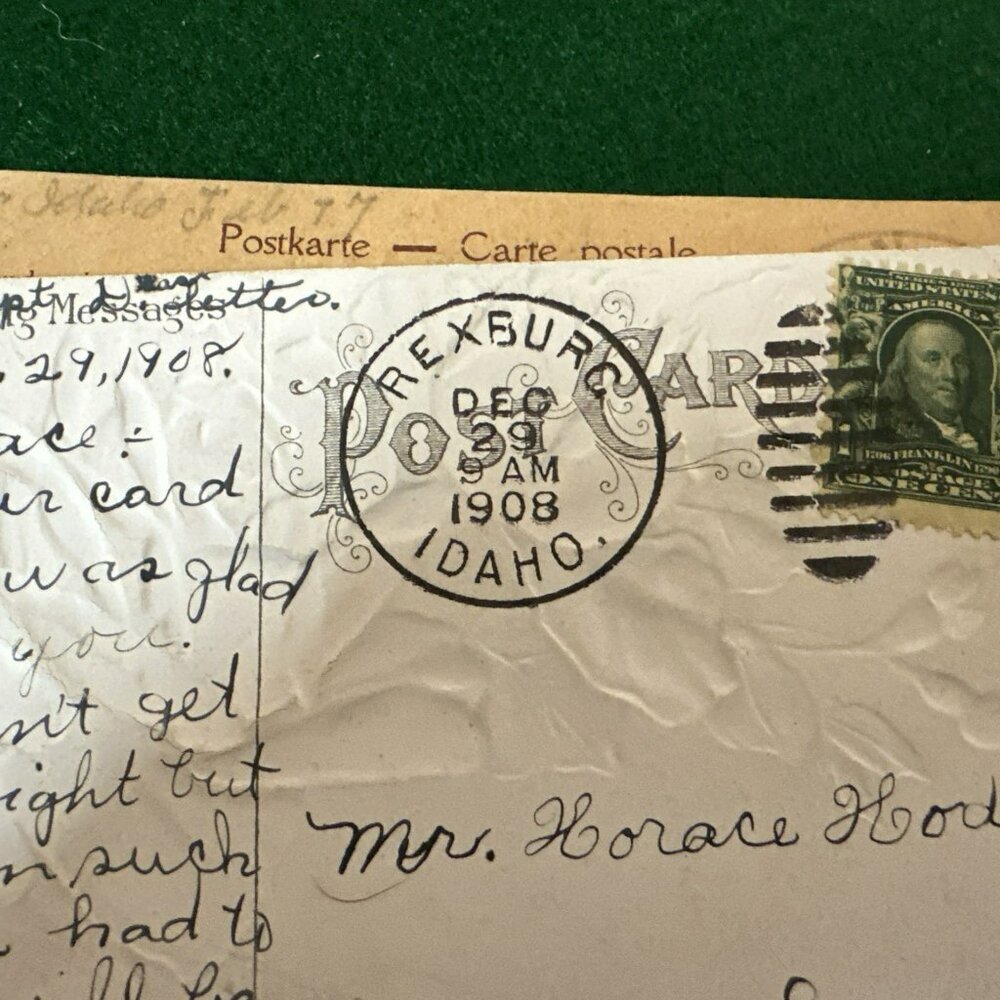 Idaho Feb
Postkarte — Carte postale
Messages
29, 1908.
ur card
was glad
you.
n't get
ight but
such
had to
POST CARD
REXBURG
DEC
29
9 AM
1908
IDAHO.
UNITED STATES
AMERICA
FRANKLIN
Mr. Horace Hod